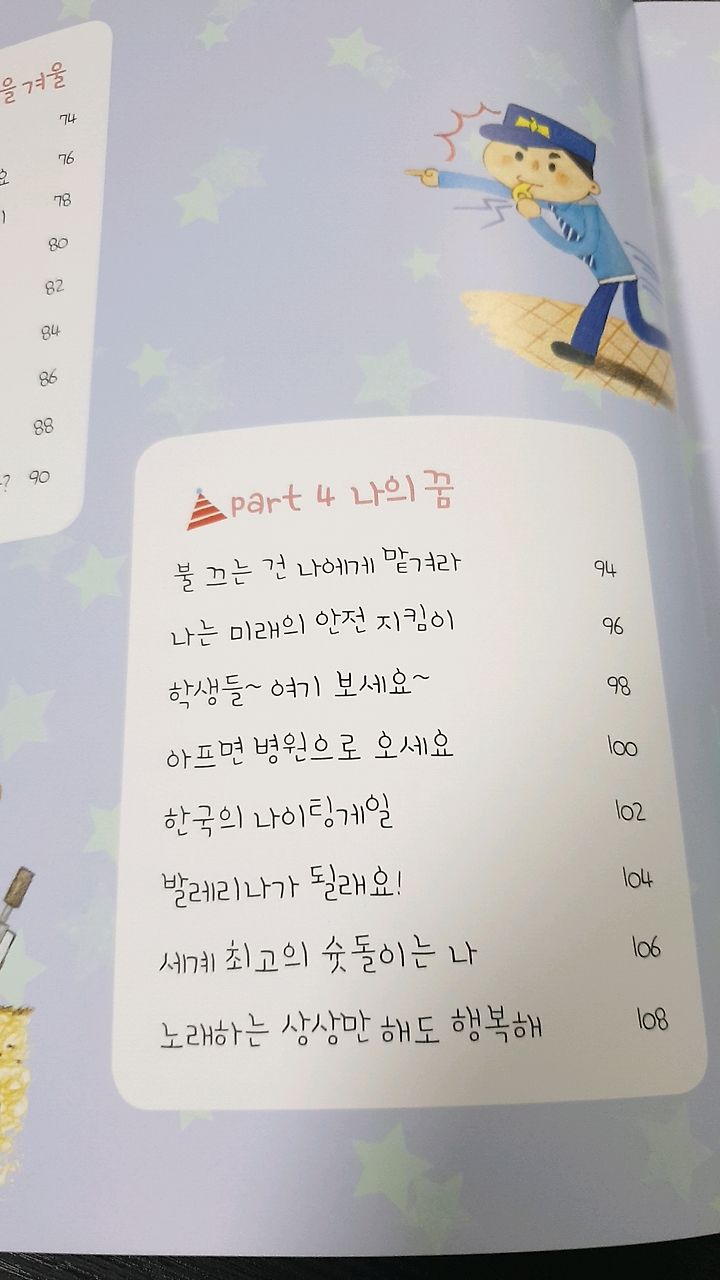 을 겨울
74
76
요
78
80
82
84
86
88
? 90
part 4 나의 꿈
불 끄는 건 나에게 맡겨라 94
나는 미래의 안전 지킴이 96
학생들~ 여기 보세요~ 98
아프면 병원으로 오세요 100
한국의 나이팅게일 102
발레리나가 될래요! 104
세계 최고의 슛돌이는 나 106
노래하는 상상만 해도 행복해 108